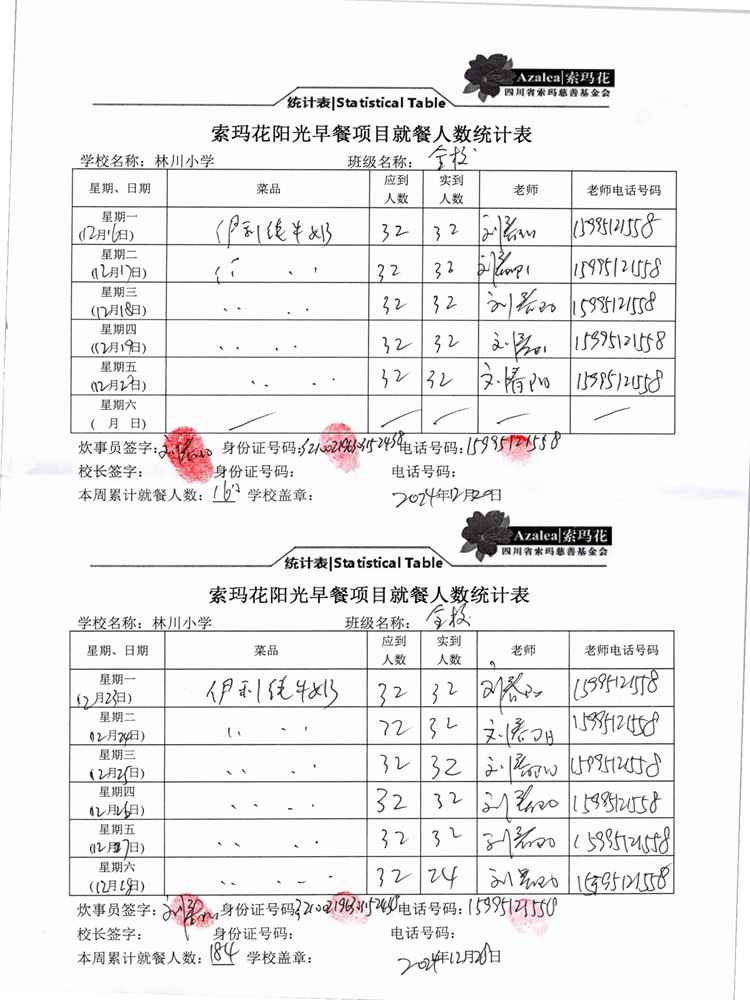 Azalea|索玛花
四川省索玛慈善基金会
统计表|Statistical Table
索玛花阳光早餐项目就餐人数统计表
学校名称：林川小学 班级名称：全校
星期、日期 菜品 应到人数 实到人数 老师 老师电话号码
星期一 (12月16日) 伊利纯牛奶 32 32 15995121558
星期二 (12月17日) 〃 〃 32 32 15995121558
星期三 (12月18日) 〃 〃 32 32 15995121558
星期四 (12月19日) 〃 〃 32 32 15995121558
星期五 (12月2日) 〃 〃 32 32 15995121558
星期六 ( 月 日)
炊事员签字： 身份证号码： 电话号码：15995121558
校长签字： 身份证号码： 电话号码：
本周累计就餐人数： 学校盖章： 2024年12月20日
Azalea|索玛花
四川省索玛慈善基金会
统计表|Statistical Table
索玛花阳光早餐项目就餐人数统计表
学校名称：林川小学 班级名称：全校
星期、日期 菜品 应到人数 实到人数 老师 老师电话号码
星期一 (12月23日) 伊利纯牛奶 32 32 15995121558
星期二 (12月24日) 〃 〃 32 15995121558
星期三 (12月25日) 〃 〃 32 32 15995121558
星期四 (12月26日) 〃 〃 32 32 15995121558
星期五 (12月27日) 〃 〃 32 32 15995121558
星期六 (12月28日) 〃 〃 32 24 15995121558
炊事员签字： 身份证号码： 电话号码：15995121558
校长签字： 身份证号码： 电话号码：
本周累计就餐人数：184 学校盖章： 2024年12月28日